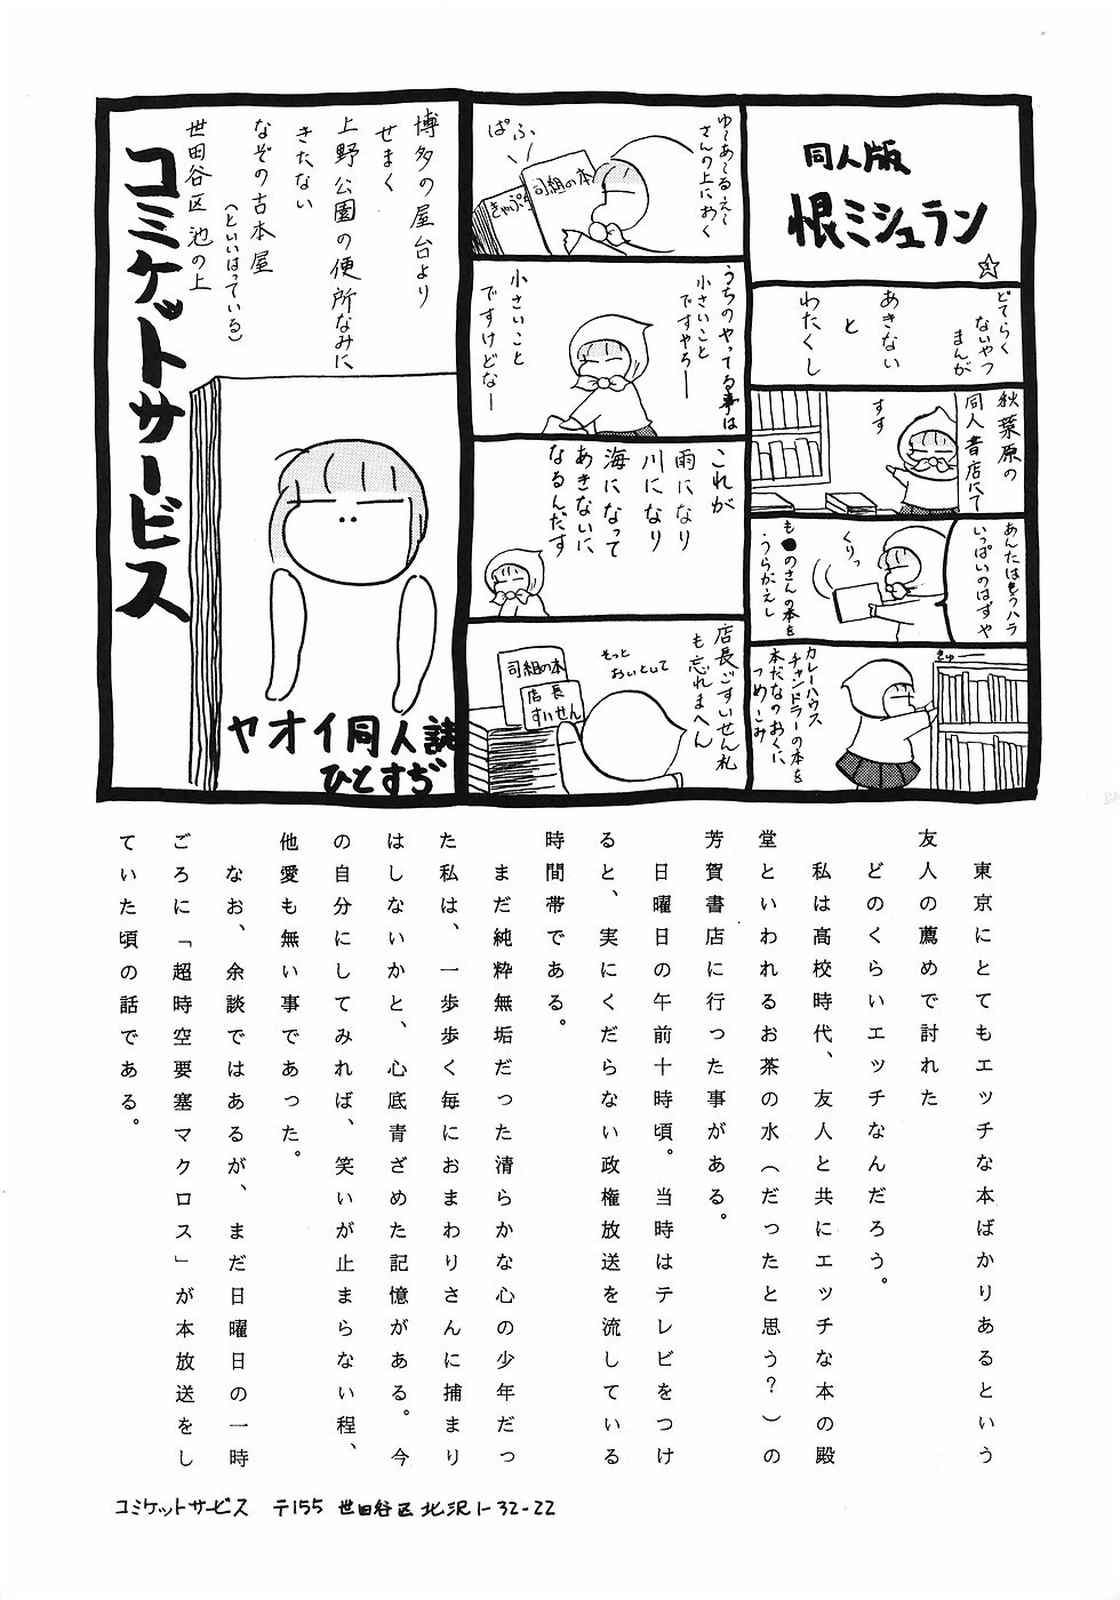 同人版
恨ミシュラン
どてらく
ないやつ
まんが
あきない
と
わたくし
秋葉原の
同人書店にて
すす
あんたはもうハラ
いっぱいのはずや
くりっ
も●のさんの本を
うらがえし
きゅーー
カレーハウス
チャンドラーの本を
本だなのおくに
つめこみ
ゆ〜あ〜るえ〜
さんの上におく
ぱふ
司組の本
きゃぷ
うちのやってる事は
小さいこと
ですやろ――
小さいこと
ですけどな―
これが
雨になり
川になり
海になって
あきないに
なるんだす
店長ごすいせん札
も忘れまへん
そっと
おいといて
司組の本
店長
すいせん
博多の屋台より
せまく
上野公園の便所なみに
きたない
なぞの古本屋
(といいはっている)
世田谷区池の上
コミケットサービス
ヤオイ同人誌
ひとすぢ
東京にとてもエッチな本ばかりあるという
友人の薦めで討れた
どのくらいエッチなんだろう。
私は高校時代、友人と共にエッチな本の殿
堂といわれるお茶の水(だったと思う?)の
芳賀書店に行った事がある。
日曜日の午前十時頃。当時はテレビをつけ
ると、実にくだらない政権放送を流している
時間帯である。
まだ純粋無垢だった清らかな心の少年だっ
た私は、一歩歩く毎におまわりさんに捕まり
はしないかと、心底青ざめた記憶がある。今
の自分にしてみれば、笑いが止まらない程、
他愛も無い事であった。
なお、余談ではあるが、まだ日曜日の一時
ごろに「超時空要塞マクロス」が本放送をし
ていた頃の話である。
コミケットサービス 〒155 世田谷区北沢1-32-22